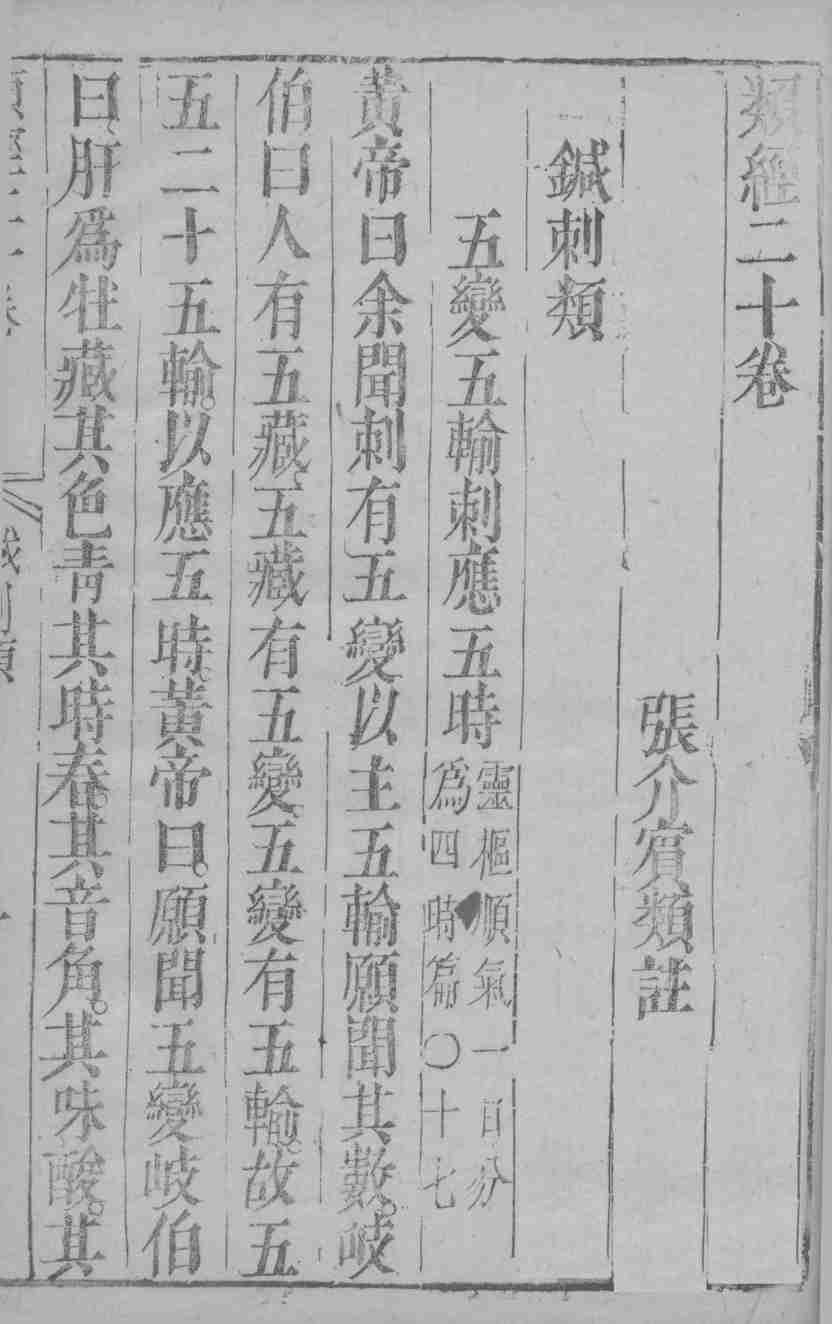 類經二十卷
張介賔類註
鍼刺類
五變五輸刺應五時
靈樞順氣一日分
爲四時篇〇十七
黄帝曰余聞刺有五變以主五輸願聞其數。岐
伯曰人有五藏、五藏有五變、五變有五輸。故五
五二十五輸。以應五時。黄帝曰。願聞五變岐伯
曰、肝爲牡藏其色青其時春。其音角。其味酸。其